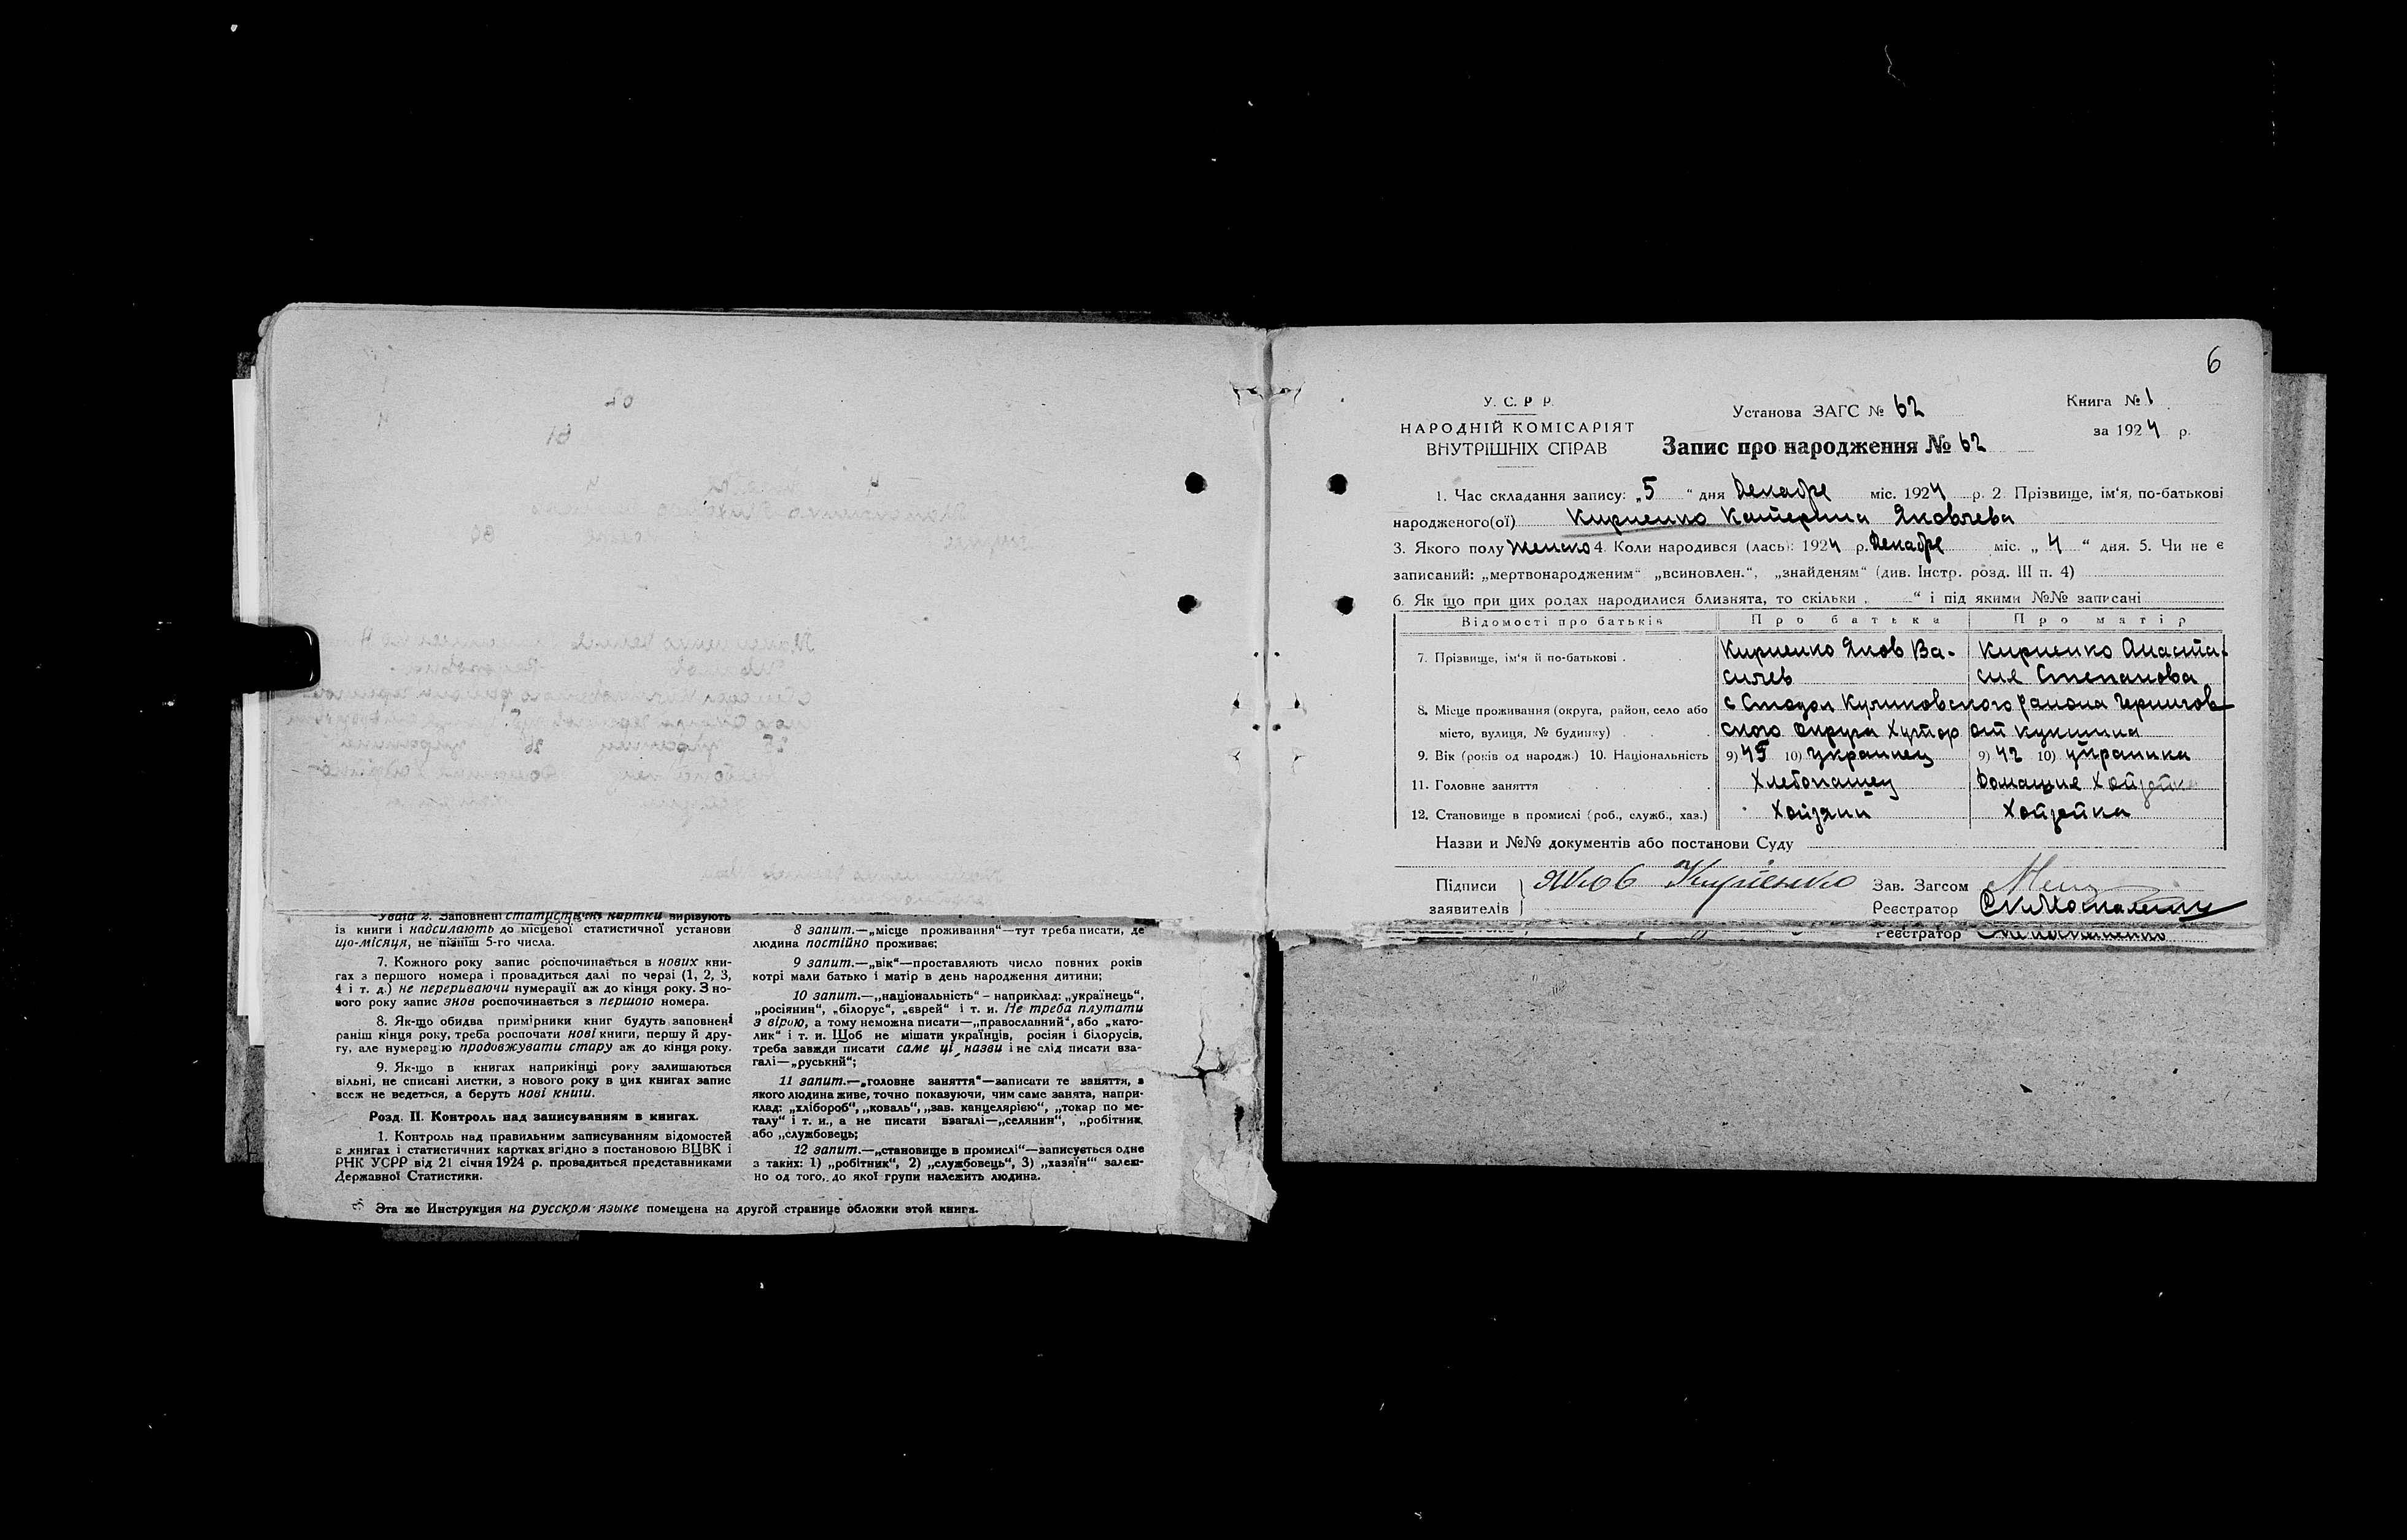 Увага 2. Заповнені статистичні картки вирізують
із книги і надсилають до місцевої статистичної установи
що-місяця, не пізніш 5-го числа.
7. Кожного року запис роспочинається в нових кни-
гах з першого номера і провадиться далі по черзі (1, 2, 3,
4 і т. д.) не перериваючи нумерації аж до кінця року. З но-
вого року запис знов роспочинається з першого номера.
8. Як-що обидва примірники книг будуть заповнені
раніш кінця року, треба роспочати нові книги, першу й дру-
гу, але нумерацію продовжувати стару аж до кінця року.
9. Як-що в книгах наприкінці року залишаються
вільні, не списані листки, з нового року в цих книгах запис
вceж не ведеться, а беруть нові книги.
Розд. II. Контроль над записуванням в книгах.
1. Контроль над правильним записуванням відомостей
в книгах і статистичних картках згідно з постановою ВЦВК і
РНК УСРР від 21 січня 1924 р. провадиться представниками
Державної Статистики.
8 запит.—„місце проживання“—тут треба писати, де
людина постійно проживає;
9 запит.—„вік“—проставляють число повних років
котрі мали батько і матір в день народження дитини;
10 запит.—„національність“ – наприклад: „українець“,
„росіянин“, „білорус“, „єврей“ і т. и. Не треба плутати
з вірою, а тому неможна писати—„православний“, або „като-
лик“ і т. и. Щоб не мішати українців, росіян і білорусів,
треба завжди писати саме ці назви і не слід писати вза-
галі—„руський“;
11 запит.—„головне заняття“—записати те заняття, з
якого людина живе, точно показуючи, чим саме занята, напри-
клад: „хлібороб“, „коваль“, „зав. канцелярією“, „токар по ме-
талу“ і т. и., а не писати взагалі—„селянин“, „робітник
або „службовець;
12 запит.—„становище в промислі“—записується одне
з таких: 1) „робітник“, 2) „службовець“, 3) „хазяїн“ залеж-
но од того, до якої групи належить людина.
Эта же Инструкция на русском языке помещена на другой странице обложки этой книги.
6
У. С. Р Р.
НАРОДНІЙ КОМІСАРІЯТ
ВНУТРІШНІХ СПРАВ
Установа ЗАГС № 62
Запис про народження № 62
Книга № 1
за 1924 р.
1. Час складання запису: „5“ дня Декабре міс. 1924 р. 2. Прізвище, ім‘я, по-батькові
народженого(ої) Кириенко Катерина Яковлева
3. Якого полу женско 4. Коли народився (лась): 1924 р. Декабре міс. „4“ дня. 5. Чи не є
записаний: „мертвонародженим“ „всиновлен.“, „знайденям“ (див. Інстр. розд. III п. 4)
6. Як що при цих родах народилися близнята, то скільки „ “ і під якими №№ записані
Відомості про батьків Про батька Про матір
7. Прізвище, ім‘я й по-батькові . Кириенко Яков Ва- Кириенко Анаста-
силев сия Степанова
8. Місце проживання (округа, район, село або с Стодол Куликовского района Чернигов
місто, вулиця, № будинку) ского округа Хутор
9. Вік (років од народж.) 10. Національність 9) 45 10) украинец 9) 42 10) украинка
11. Головне заняття Хлебопашец Домашня Хойзейка
12. Становище в промислі (роб., служб., хаз.) Хойзяин Хойзейка
Назви и №№ документів або постанови Суду
Підписи
заявителів
Яков Кириенко
Зав. Загсом
Реєстратор
Реєстратор